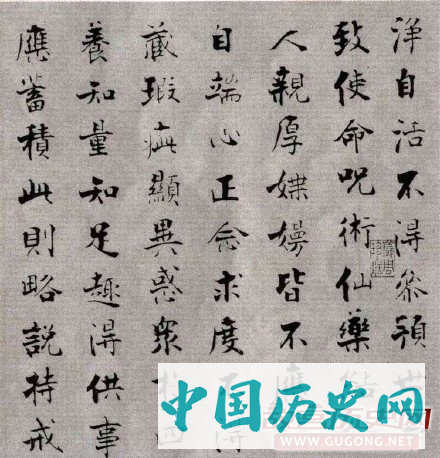 淨自活不得參預
致使命呪術仙藥
人親厚媟嫚皆不
自端心正念求度
藏瑕疵顯異惑衆
養知量知足趣得供事
應蓄積此則略說持戒
中国历史网
WWW.GUGONG.NET